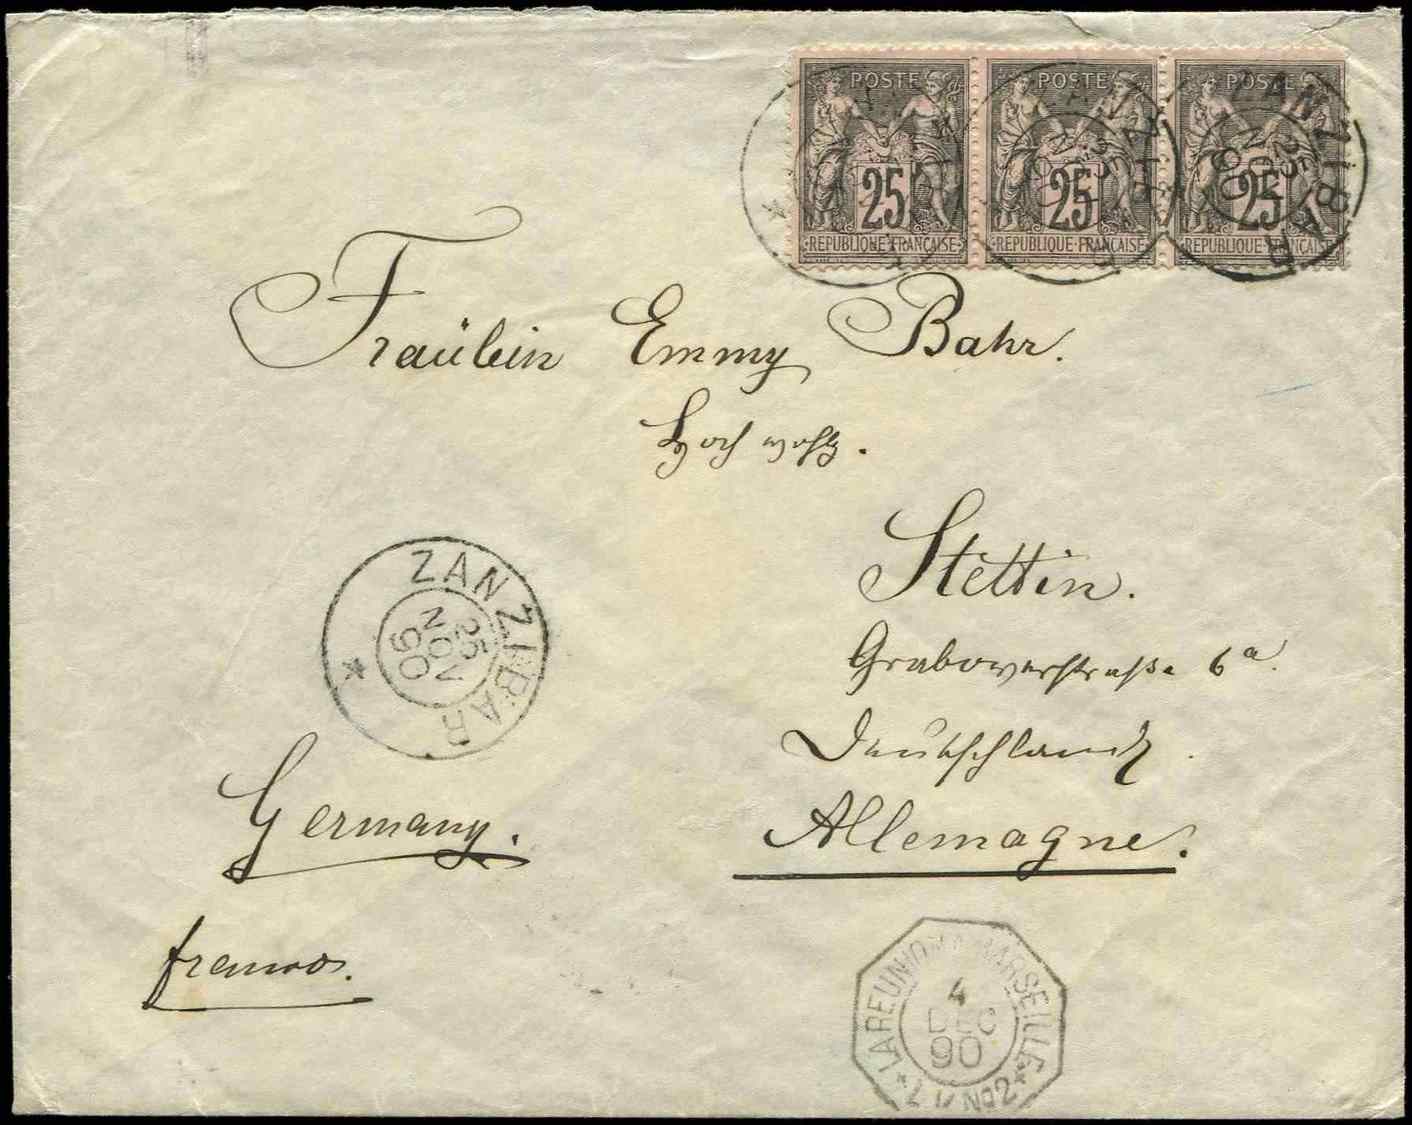 POSTE POSTE POSTE
25 25 25
REPUBLIQUE FRANÇAISE REPUBLIQUE FRANÇAISE REPUBLIQUE FRANÇAISE
ZANZIBAR
25 NOV 90
Fraülein Emmy Bahr.
Hochwohlg.
Stettin.
Grabowerstraße 6a.
Deutschland.
ZANZIBAR
25
NOV
90
Germany.
Allemagne.
franco.
LA REUNION A MARSEILLE
4
DEC
90
L V No2